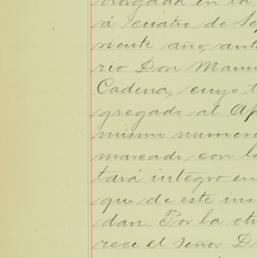 otorgada en la
á cuatro de Se
riente año, ant
rio Don Manu
Cadena, cuyo t
gregado al Ap
mismo numero
marcado con la
tará integro en
que de este ins
dan. Por la otr
rece el Señor D